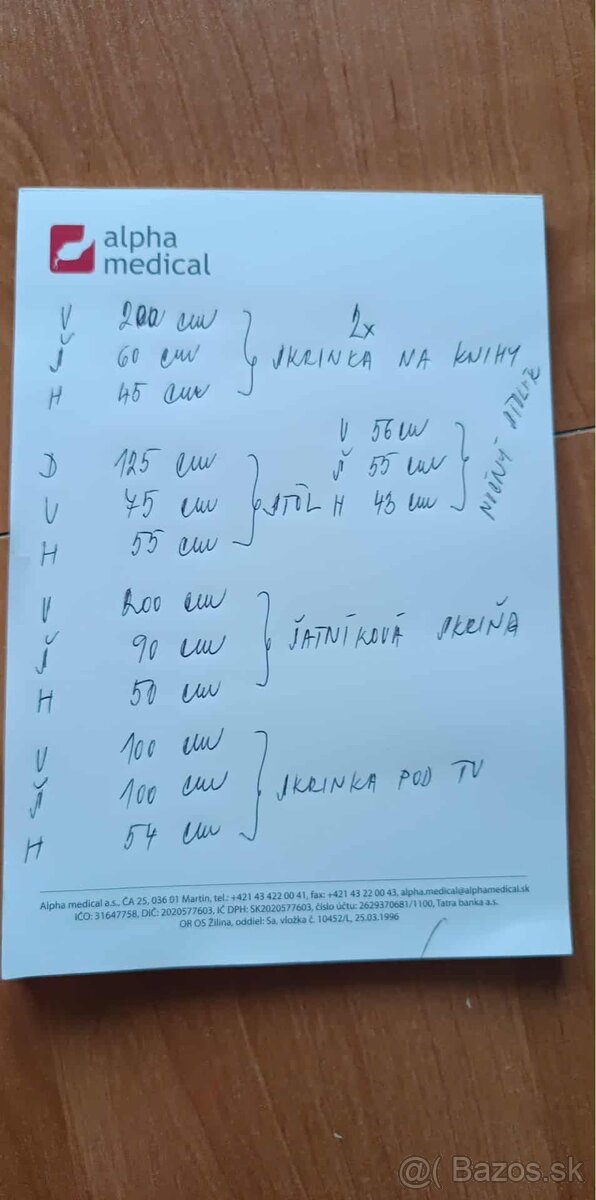 alpha
medical
V 200 cm
Š 60 cm
H 45 cm
2x
SKRINKA NA KNIHY
D 125 cm
V 75 cm
H 55 cm
STÔL
V 56 cm
Š 55 cm
H 43 cm
NOČNÝ STOLÍK
V 200 cm
Š 90 cm
H 50 cm
ŠATNÍKOVÁ SKRIŇA
V 100 cm
Š 100 cm
H 54 cm
SKRINKA POD TV
Alpha medical a.s., ČA 25, 036 01 Martin, tel.: +421 43 422 00 41, fax: +421 43 22 00 43, alpha.medical@alphamedical.sk
IČO: 31647758, DIČ: 2020577603, IČ DPH: SK2020577603, číslo účtu: 2629370681/1100, Tatra banka a.s.
OR OS Žilina, oddiel: Sa, vložka č. 10452/L, 25.03.1996
@( Bazos.sk